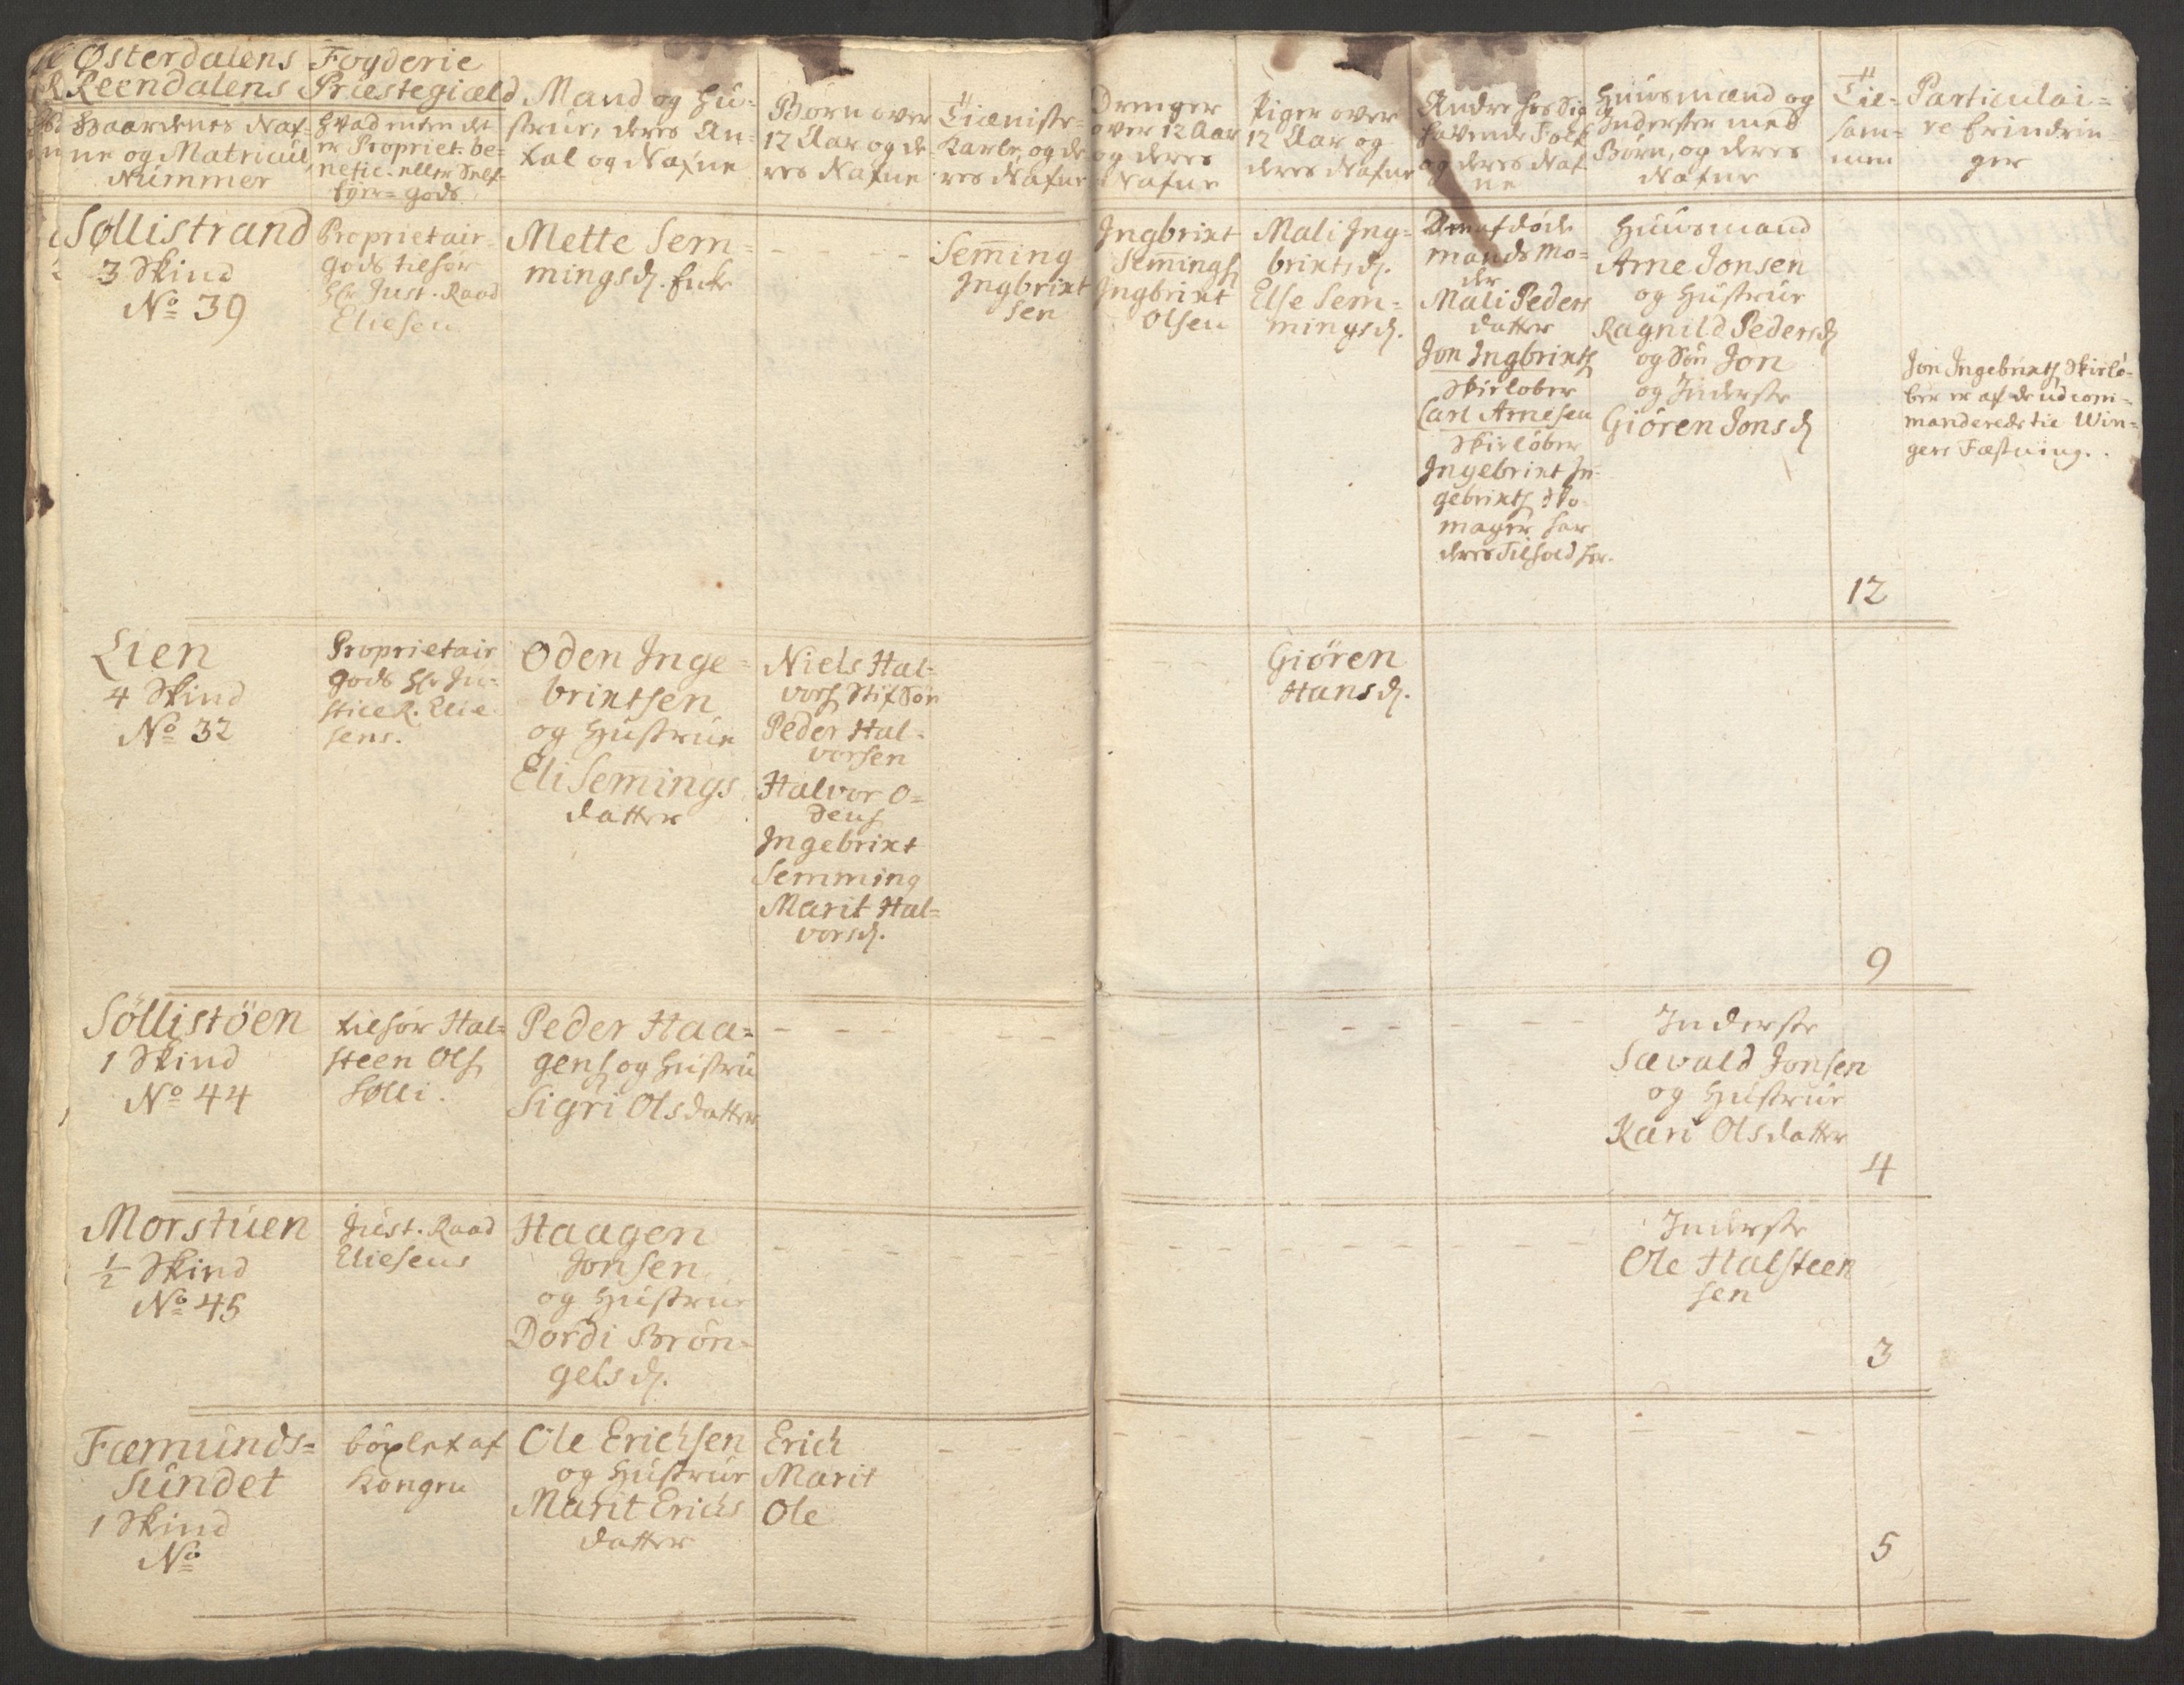 Østerdalens Fogderie
Reendalens Præstegiæld
Gaardenes Naf-
ne og Matricul
Nummer
Hvad enten det
er Propriet. be-
nefic. eller Self-
Eÿer-gods
Mand og Hu-
strue, deres An-
tal og Nafne
Børn over
12 Aar og de-
res Nafne
Tieniste-
Karle, og de-
res Nafne
Drenger
over 12 Aar
og deres
Nafne
Piger over
12 Aar og
deres Nafne
Andre hos Sig
havende Folk
og deres Naf-
ne
Huusmænd og
Inderster med
Børn, og deres
Nafne
Til-
sam-
men
Particulai-
re Erindrin-
ger
Søllistrand
3 Skind
No 39
Proprietair-
gods tilhør
Hr Just. Raad
Eliesen
Mette Sem-
mingsd. Enke
- - - -
Seming
Ingbrixt
sen
Ingbrixt
Semings
Ingbrixt
Olsen
Mali Ing-
brixtsd.
Else Sem-
mingsd.
Den afdøde
mands Mo-
der
Mali Peders
datter
Jon Ingbrixts
Skirløber
Carl Arnesen
Skirløber
Ingebrixt In-
gebrixts Sko-
mager har
deres Tilhold her.
Huusmand
Arne Jonsen
og Hustrue
Ragnild Pedersd
og Søn Jon
og Inderste
Giören Jonsd
12
Jon Ingebrixts Skirlø-
ber er af de udcom-
manderede til Win-
gers Fæstning.
Lien
4 Skind
No 32
Proprietair
gods Hr Ju-
stice R. Elie-
sens.
Oden Inge-
brixtsen
og Hustrue
Eli Semings
datter
Niels Hal-
vors. Stifsøn
Peder Hal-
vorsen
Halvor O-
dens
Ingebrixt
Semming
Marit Hal-
vorsd.
- -
Giören
Hansd.
9
Söllistöen
1 Skind
No 44
tilhør Hal-
steen Ols
Sølli.
Peder Haa-
gens og Hustru
Sigri Olsdatter
- - -
- -
- - - - -
Inderste
Sævald Jonsen
og Hustrue
Kari Olsdatter
4
Morstuen
1/2 Skind
No 45
Just. Raad
Eliesens
Haagen
Jonsen
og Hustrue
Dordi Brön-
gelsd.
Inderste
Ole Halsteen
sen
3
Fæmunds-
sundet
1 Skind
No
böxlet af
Kongen
Ole Erichsen
og Hustrue
Marit Erichs
datter
Erich
Marit
Ole
5